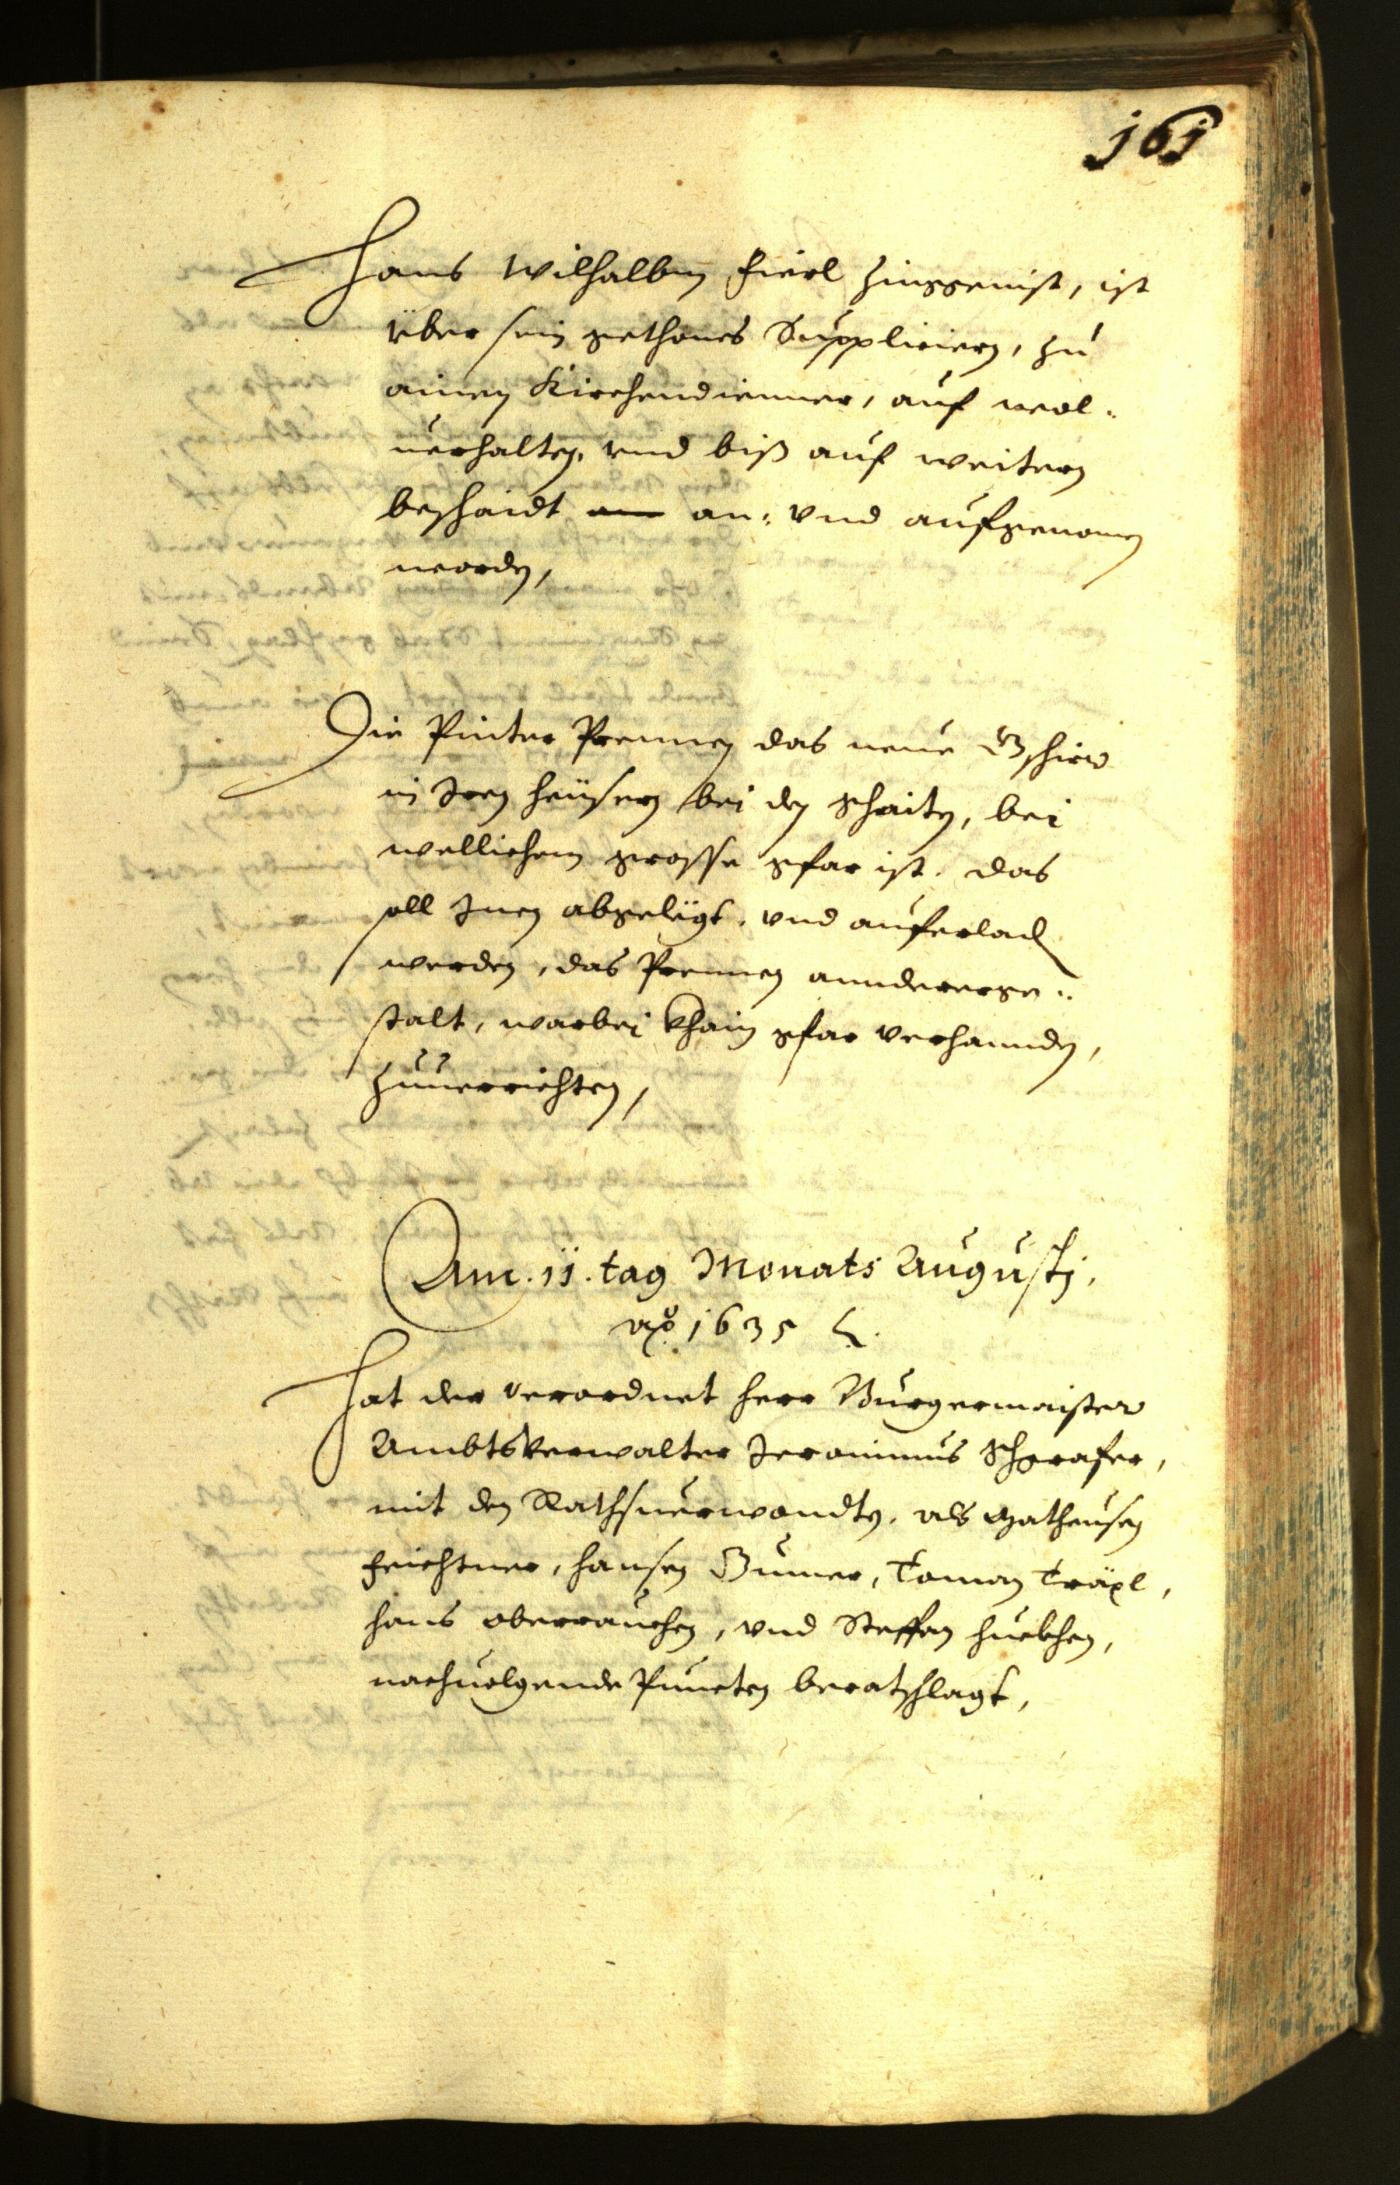 161
Hans Wilhalbm Hierl Zinggenist, ist
über sein gethones Suppliciern, zu
ainen Kirchendienner, auf wol¬
uerhalten, vnd biß auf weitern
beschaidt an: vnd aufgenomen
worden,
Die Pinter Prennen das neue Gschier
in Iren heüsern bei den Schaiten, bei
wellichem grosse gfar ist. das
soll Inen abgelegt, vnd auferladen
werden, das Prennen anndererge¬
stalt, warbei khain gfar verhannden,
zuuerrichten,
Am .11. tag Monats Augustj,
ao 1635
Hat der verordnet herr Burgermaister
Ambtsverwalter Jeronimus Schgrafer,
mit den Rathsuerwandten, als Matheusen
Feichtner, Hansen Gumer, Toman Träxl,
Hans Oberrauchen, vnd Steffan Huebhen,
nachuolgende Puncten beratschlagt,